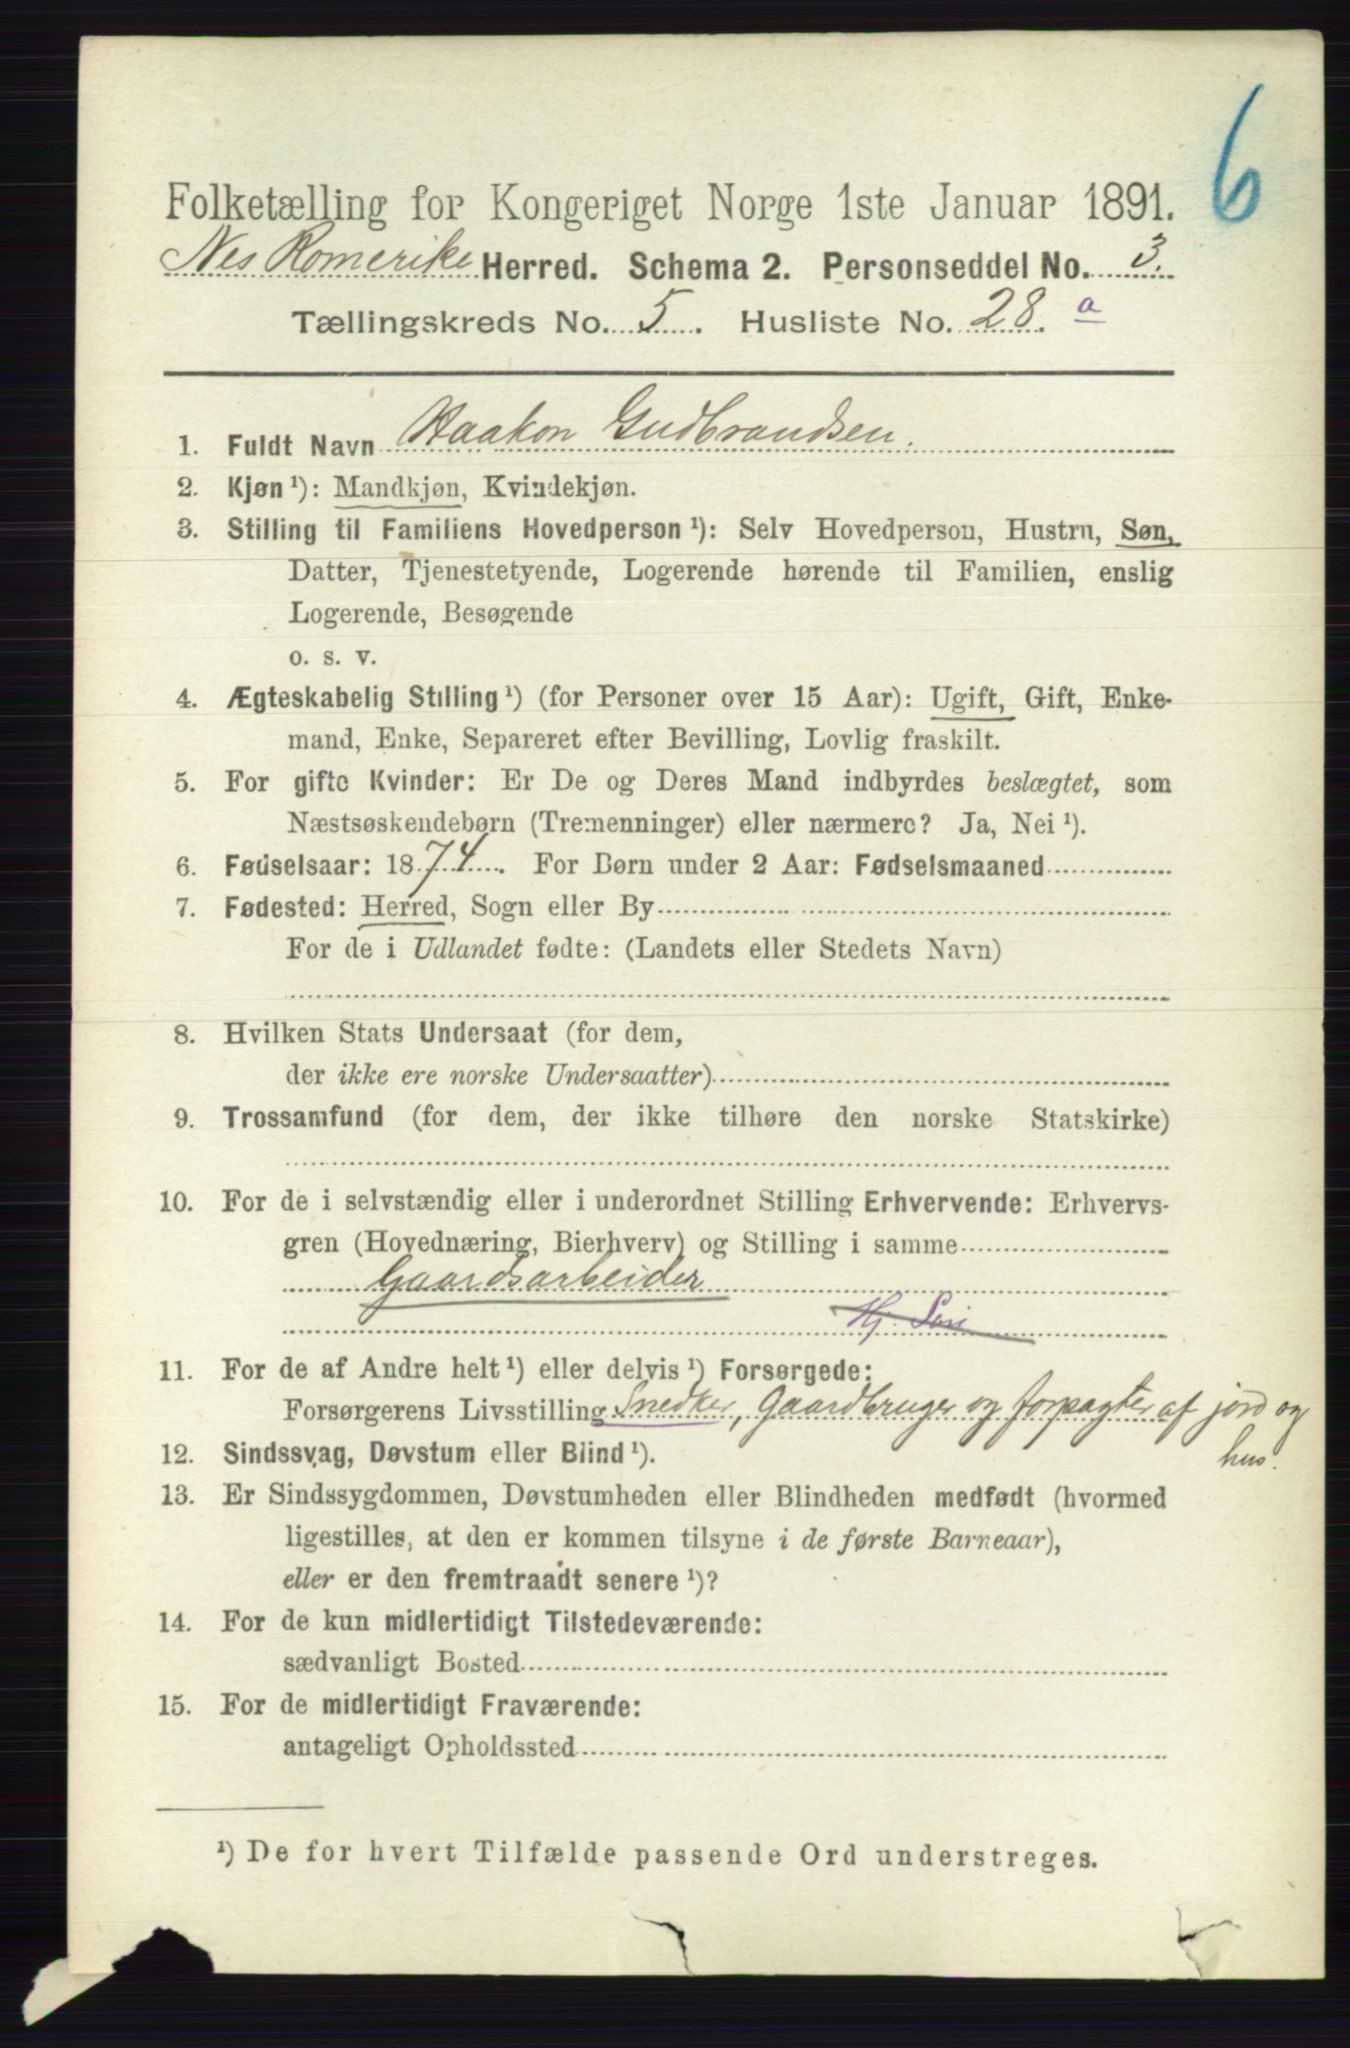 6
Folketælling for Kongeriget Norge 1ste Januar 1891.
Nes Romerike Herred. Schema 2. Personseddel No. 3.
Tællingskreds No. 5. Husliste No. 28. a
1. Fuldt Navn Haakon Gudbrandsen.
2. Kjøn ¹): Mandkjøn, Kvindekjøn.
3. Stilling til Familiens Hovedperson ¹): Selv Hovedperson, Hustru, Søn,
Datter, Tjenestetyende, Logerende hørende til Familien, enslig
Logerende, Besøgende
o. s. v.
4. Ægteskabelig Stilling ¹) (for Personer over 15 Aar): Ugift, Gift, Enke-
mand, Enke, Separeret efter Bevilling, Lovlig fraskilt.
5. For gifte Kvinder: Er De og Deres Mand indbyrdes beslægtet, som
Næstsøskendebørn (Tremenninger) eller nærmere? Ja, Nei ¹).
6. Fødselsaar: 1874. For Børn under 2 Aar: Fødselsmaaned
7. Fødested: Herred, Sogn eller By
For de i Udlandet fødte: (Landets eller Stedets Navn)
8. Hvilken Stats Undersaat (for dem,
der ikke ere norske Undersaatter)
9. Trossamfund (for dem, der ikke tilhøre den norske Statskirke)
10. For de i selvstændig eller i underordnet Stilling Erhvervende: Erhvervs-
gren (Hovednæring, Bierhverv) og Stilling i samme
Gaardsarbeider
Hj.
11. For de af Andre helt ¹) eller delvis ¹) Forsørgede:
Forsørgerens Livsstilling Snedker, Gaardbruger og forpagter af jord og
hus.
12. Sindssvag, Døvstum eller Blind ¹).
13. Er Sindssygdommen, Døvstumheden eller Blindheden medfødt (hvormed
ligestilles, at den er kommen tilsyne i de første Barneaar),
eller er den fremtraadt senere ¹)?
14. For de kun midlertidigt Tilstedeværende:
sædvanligt Bosted
15. For de midlertidigt Fraværende:
antageligt Opholdssted
¹) De for hvert Tilfælde passende Ord understreges.